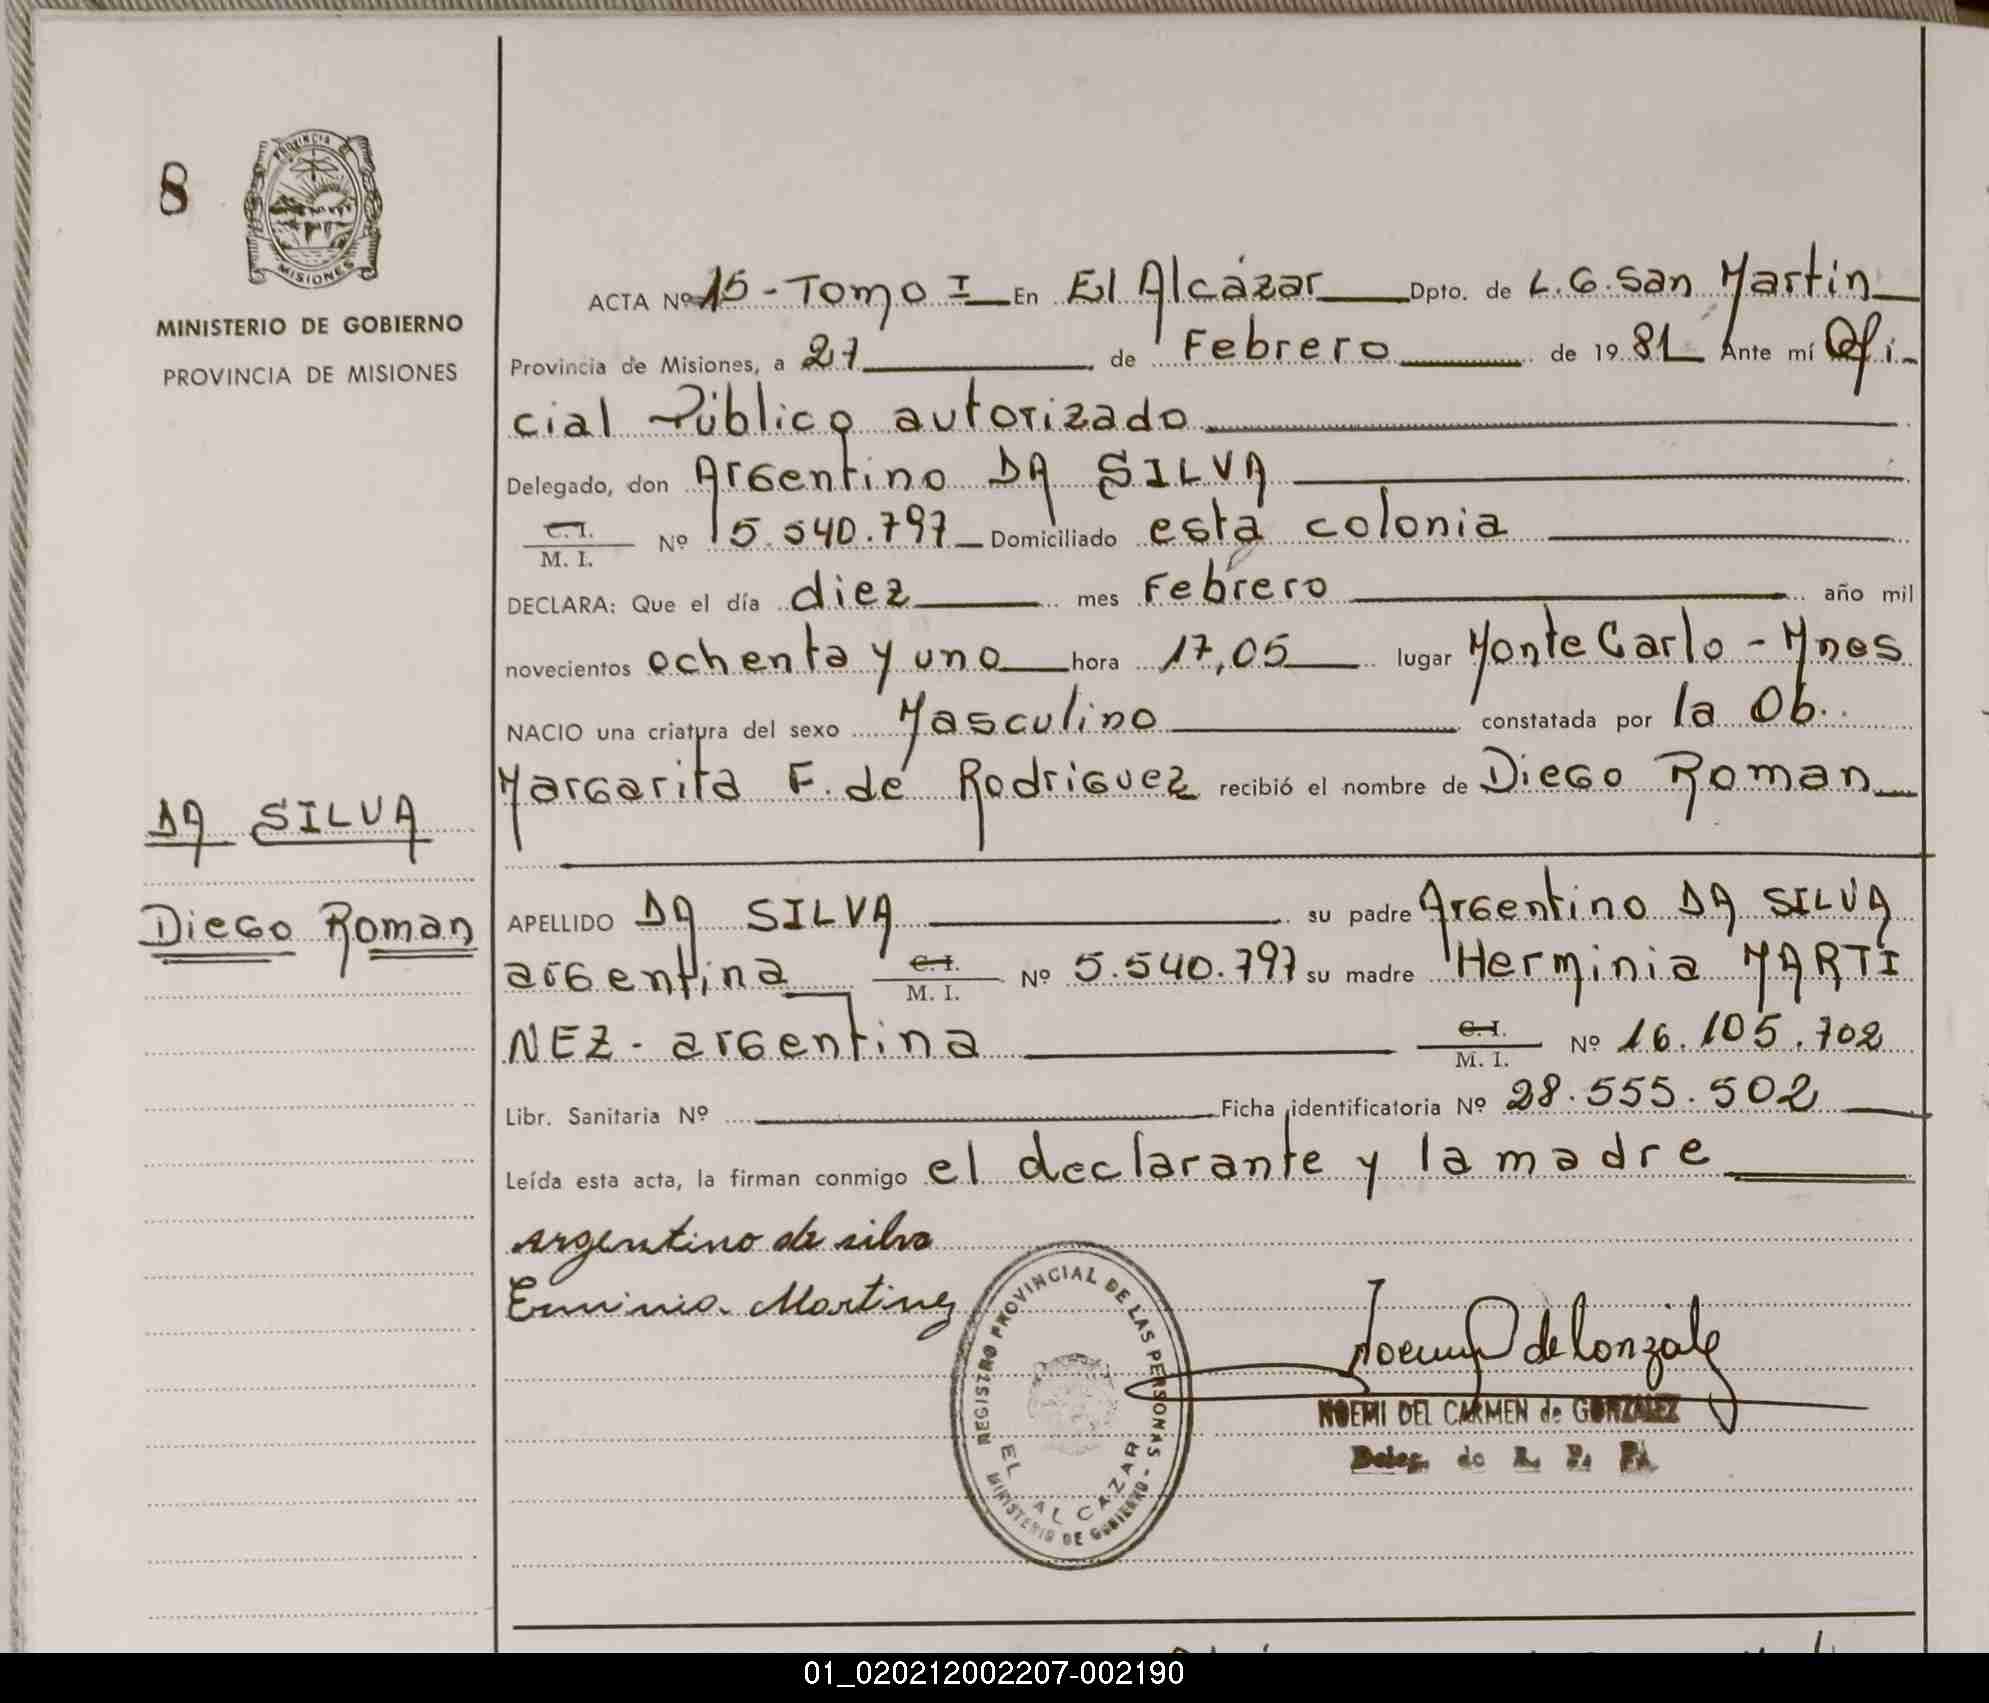 8
PROVINCIA DE
MISIONES
MINISTERIO DE GOBIERNO
PROVINCIA DE MISIONES
DA SILVA
Diego Roman
ACTA Nº 15 - Tomo I En El Alcázar Dpto. de L.G. San Martin
Provincia de Misiones, a 27 de Febrero de 1981 Ante mí Ofi-
cial Público autorizado
Delegado, don Argentino DA SILVA
C. I.
M. I. Nº 5.540.797 Domiciliado esta colonia
DECLARA: Que el día diez mes Febrero año mil
novecientos ochenta y uno hora 17,05 lugar Monte Carlo - Mnes
NACIO una criatura del sexo Masculino constatada por la Ob.
Margarita F. de Rodriguez recibió el nombre de Diego Roman
APELLIDO DA SILVA su padre Argentino DA SILVA
argentina C. I. M. I. Nº 5.540.797 su madre Herminia MARTI
NEZ - argentina C. I. M. I. Nº 16.105.702
Libr. Sanitaria Nº Ficha identificatoria Nº 28.555.502
Leída esta acta, la firman conmigo el declarante y la madre
Argentino da silva
Erminia Martinez
REGISTRO PROVINCIAL DE LAS PERSONAS
EL ALCAZAR
MINISTERIO DE GOBIERNO -
Noemi de Gonzalez
NOEMI DEL CARMEN de GONZALEZ
Deleg. de R. P.
01_020212002207-002190